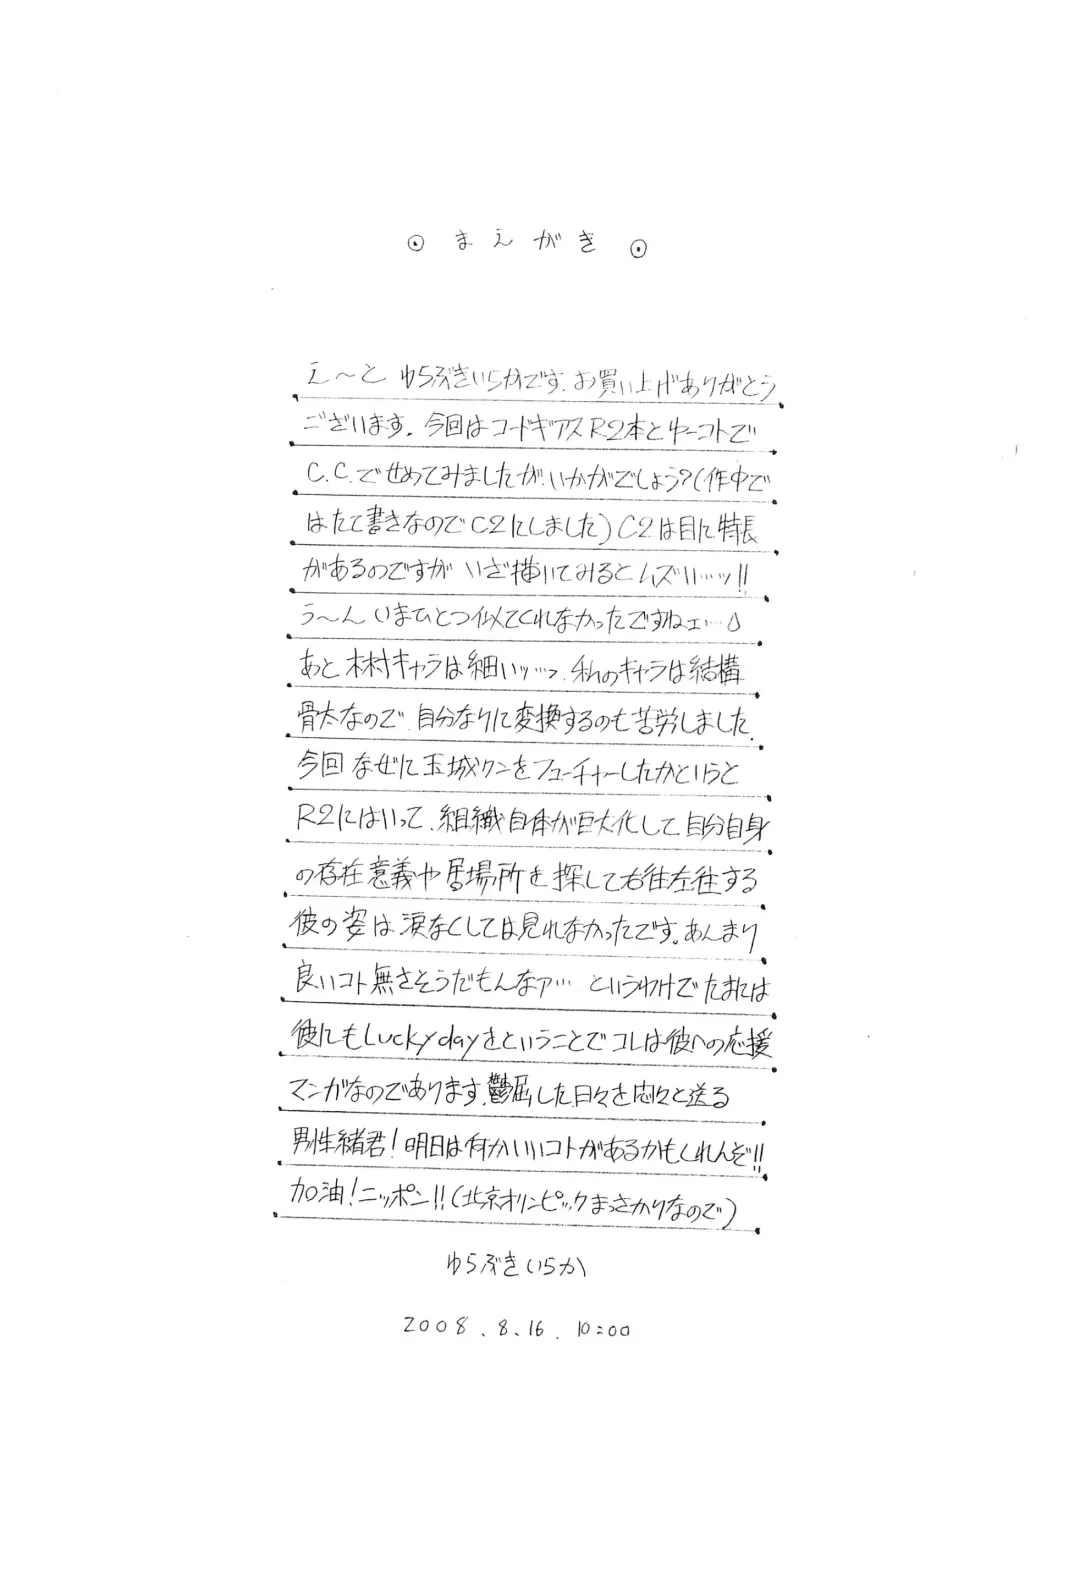 ⊙ まえがき ⊙
え〜と ゆらぶきいらかです. お買い上げありがとう
ございます. 今回はコードギアスR2本とゆーコトで
C.C.でせめてみましたが、いかがでしょう?(作中で
はたて書きなのでC2にしました)C2は目に特長
があるのですが いざ描いてみるとムズいい…ッ!!
う〜ん いまひとつ似てくれなかったですねェ…
あと 木村キャラは細いッ…っ. 私のキャラは結構
骨太なので 自分なりに変換するのも苦労しました.
今回 なぜに玉城クンをフューチャーしたかというと
R2にはいって、組織自体が巨大化して自分自身
の存在意義や居場所を探して右往左往する
彼の姿は涙なくしては見れなかったです。あんまり
良いコト無さそうだもんなァ… というわけでたまには
彼にもLucky dayをということで コレは彼への応援
マンガなのであります. 鬱屈した日々を悶々と送る
男性緒君! 明日は何かいいコトがあるかもしれんぞ!!
加油!ニッポン!!(北京オリンピックまっさかりなので)
ゆらぶきいらか
2008.8.16. 10:00